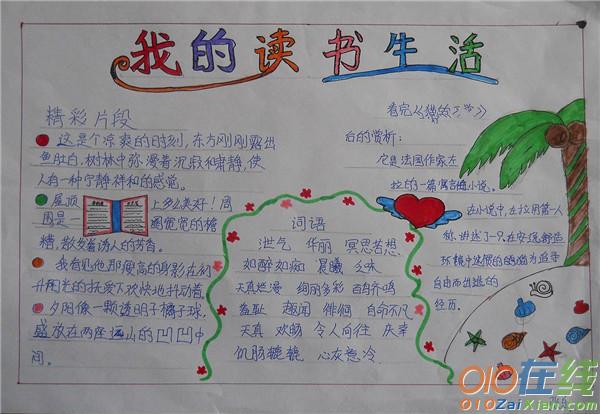 我的读书生活
精彩片段
这是个凉爽的时刻，东方刚刚露出
鱼肚白，树林中弥漫着沉寂和肃静，使
人有一种宁静祥和的感觉。
屋顶上多么美好！周
围是一圈宽宽的檐
糟，散发着诱人的芳香。
我看见他那瘦高的身影在树
月光的抚爱下欢快地抖动着
夕阳像一颗透明子橘子球，
盛放在两座远山的凹凹中
间。
词语
泄气 华丽 冥思苦想
如醉如痴 晨曦 乏味
天真烂漫 绚丽多彩 百鸟齐鸣
羞耻 趣闻 徘徊 自命不凡
天真 欢畅 令人向往 庆幸
饥肠辘辘 心灰意冷
看完《猫的
后的赏析：
它是法国作家左
拉的一篇寓言小说。
在小说中，左拉用第一人
称，讲述了一只在安逸舒适
环境中选惯的的猫为追寻
自由而出逃的
经历。
010在线
010ZaiXian.com